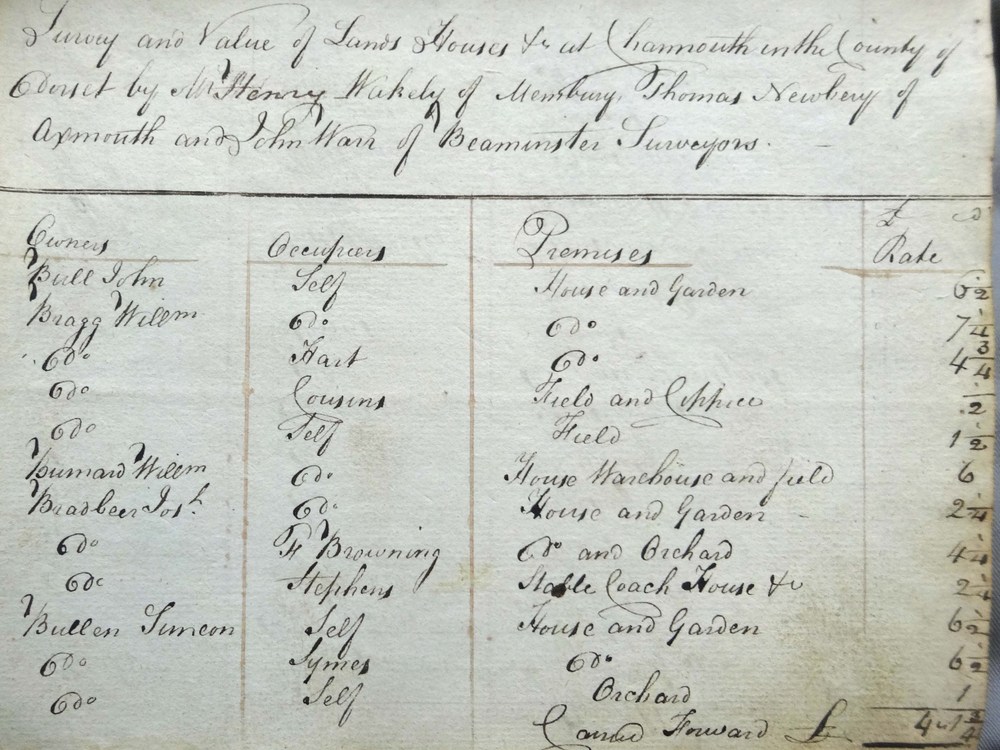 Survey and Value of Lands Houses &c at Charmouth in the County of
Dorset by Mr Henry Wakely of Membury, Thomas Newbery of
Axmouth and John Warr of Beaminster Surveyors.
£ d
Owners Occupiers Premises Rate
Bull John Self House and Garden 6 1/2
Bragg Willm Do Do 7 1/4
Do Hart Do 4 3/4
Do Cousins Field and Coppice 1/2
Do Self Field 1 1/2
Willm Do House Warehouse and field 6
Bradbeer Josh. Do House and Garden 2 1/4
Do H Browning Do and Orchard 4 1/4
Do Stephens Stable Coach House &c 2 1/4
Bullen Simeon Self House and Garden 6 1/2
Do Symes Do 6 1/2
Do Self Orchard 1
Carried Forward £ 4 1 3/4